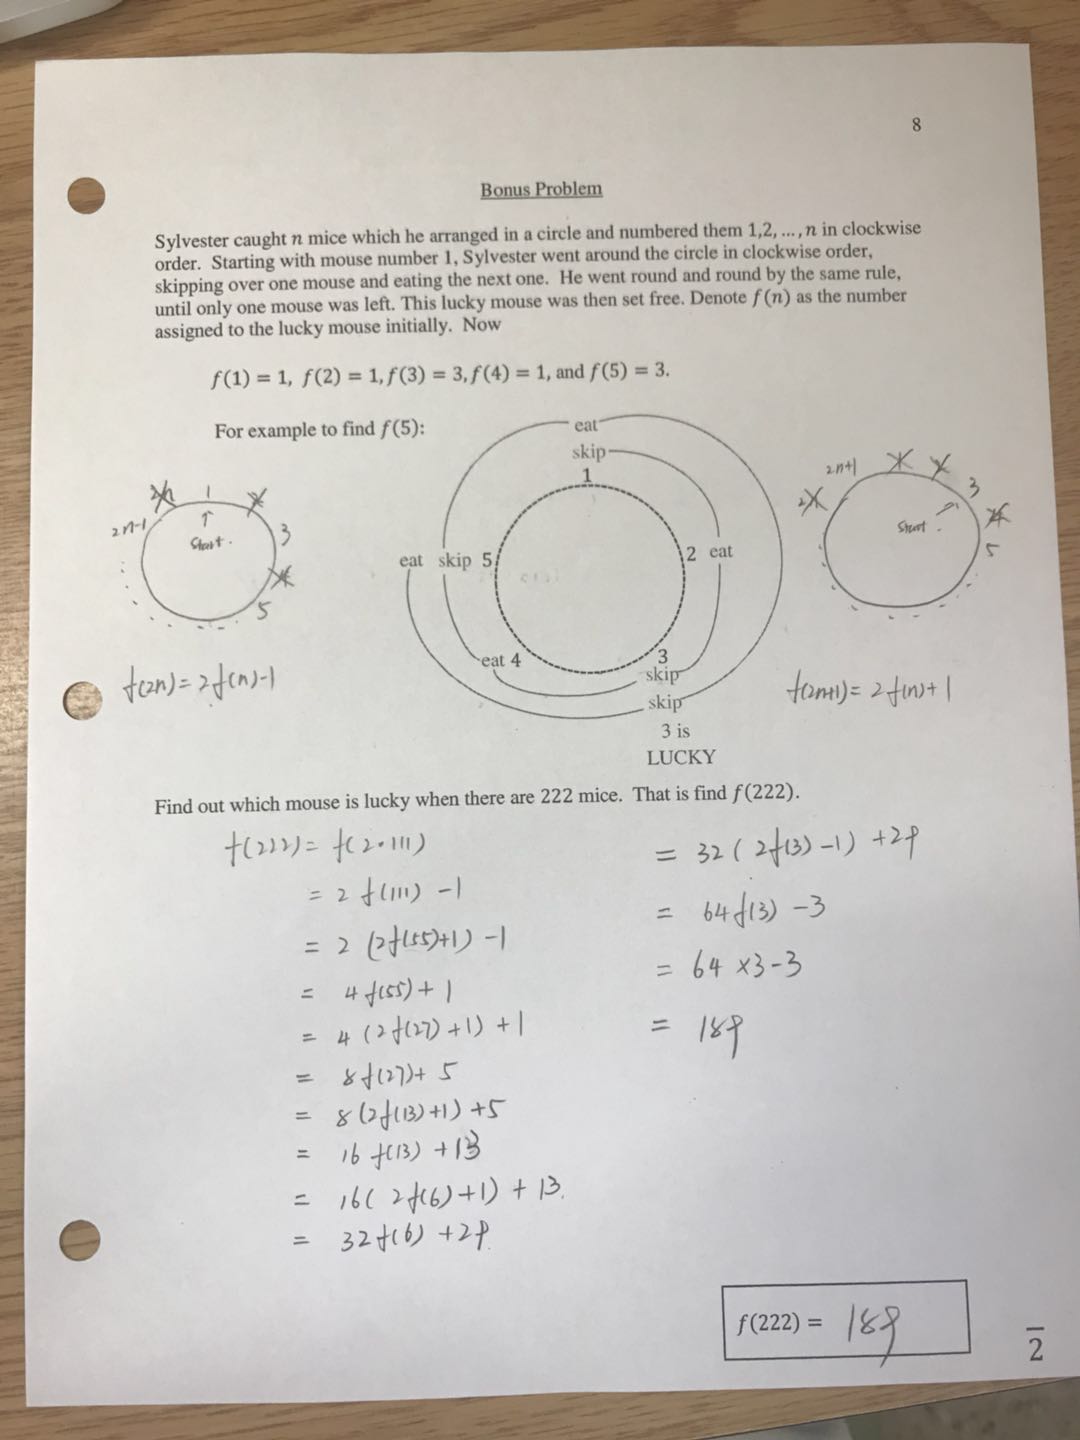 8
Bonus Problem
Sylvester caught n mice which he arranged in a circle and numbered them 1,2, ..., n in clockwise
order. Starting with mouse number 1, Sylvester went around the circle in clockwise order,
skipping over one mouse and eating the next one. He went round and round by the same rule,
until only one mouse was left. This lucky mouse was then set free. Denote f(n) as the number
assigned to the lucky mouse initially. Now
f(1) = 1, f(2) = 1, f(3) = 3, f(4) = 1, and f(5) = 3.
For example to find f(5):
eat
skip
1
2 eat
3
skip
skip
3 is
LUCKY
eat 4
eat skip 5
2n-1
1
3
5
Start.
f(2n) = 2f(n)-1
2n+1
3
5
Start.
f(2n+1) = 2f(n)+1
Find out which mouse is lucky when there are 222 mice. That is find f(222).
f(222) = f(2·111)
= 2 f(111) -1
= 2 (2f(55)+1) -1
= 4 f(55) + 1
= 4 (2f(27)+1) +1
= 8f(27)+ 5
= 8(2f(13)+1) +5
= 16 f(13) +13
= 16( 2f(6)+1) + 13.
= 32f(6) +29.
= 32( 2f(3) -1) +29
= 64f(3) -3
= 64 ×3-3
= 189
f(222) = 189
2